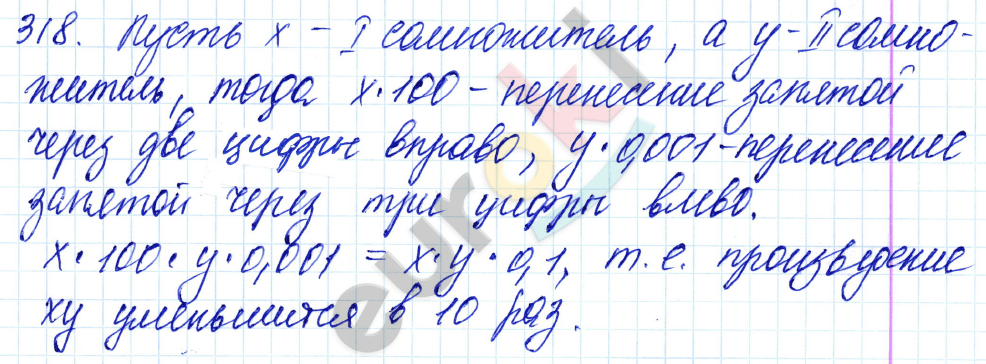 318. Пусть x - I сомножитель, а y - II сомно-
житель, тогда x·100 - перенесение запятой
через две цифры вправо, y·0,001 - перенесение
запятой через три цифры влево.
x·100·y·0,001 = x·y·0,1, т.е. произведение
xy уменьшится в 10 раз.
euroki